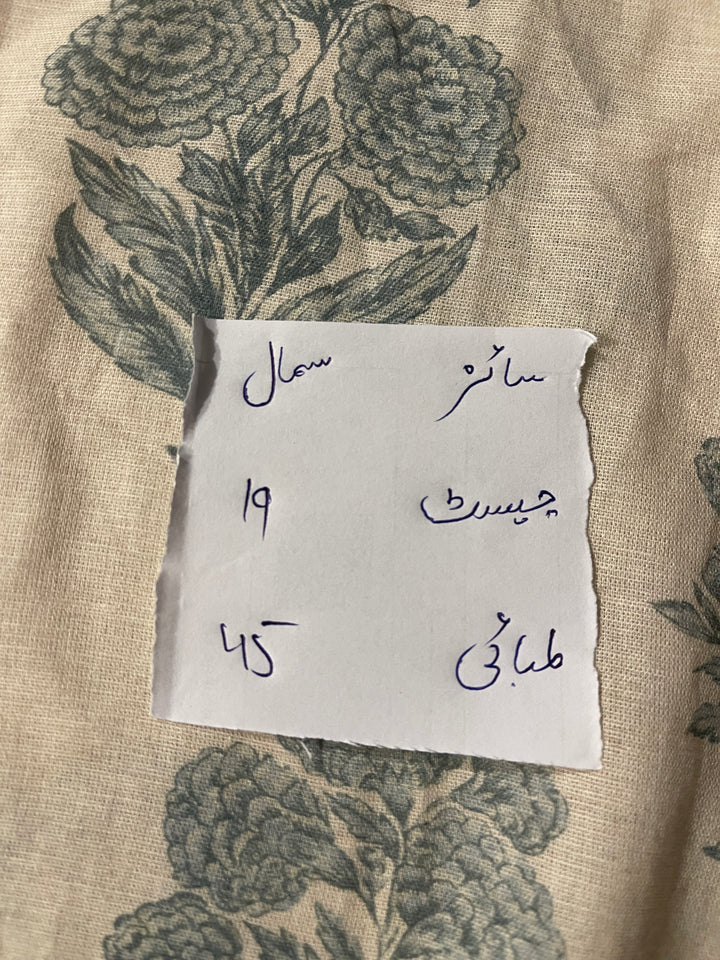 سائز سمال
چیسٹ 19
لمبائی 45